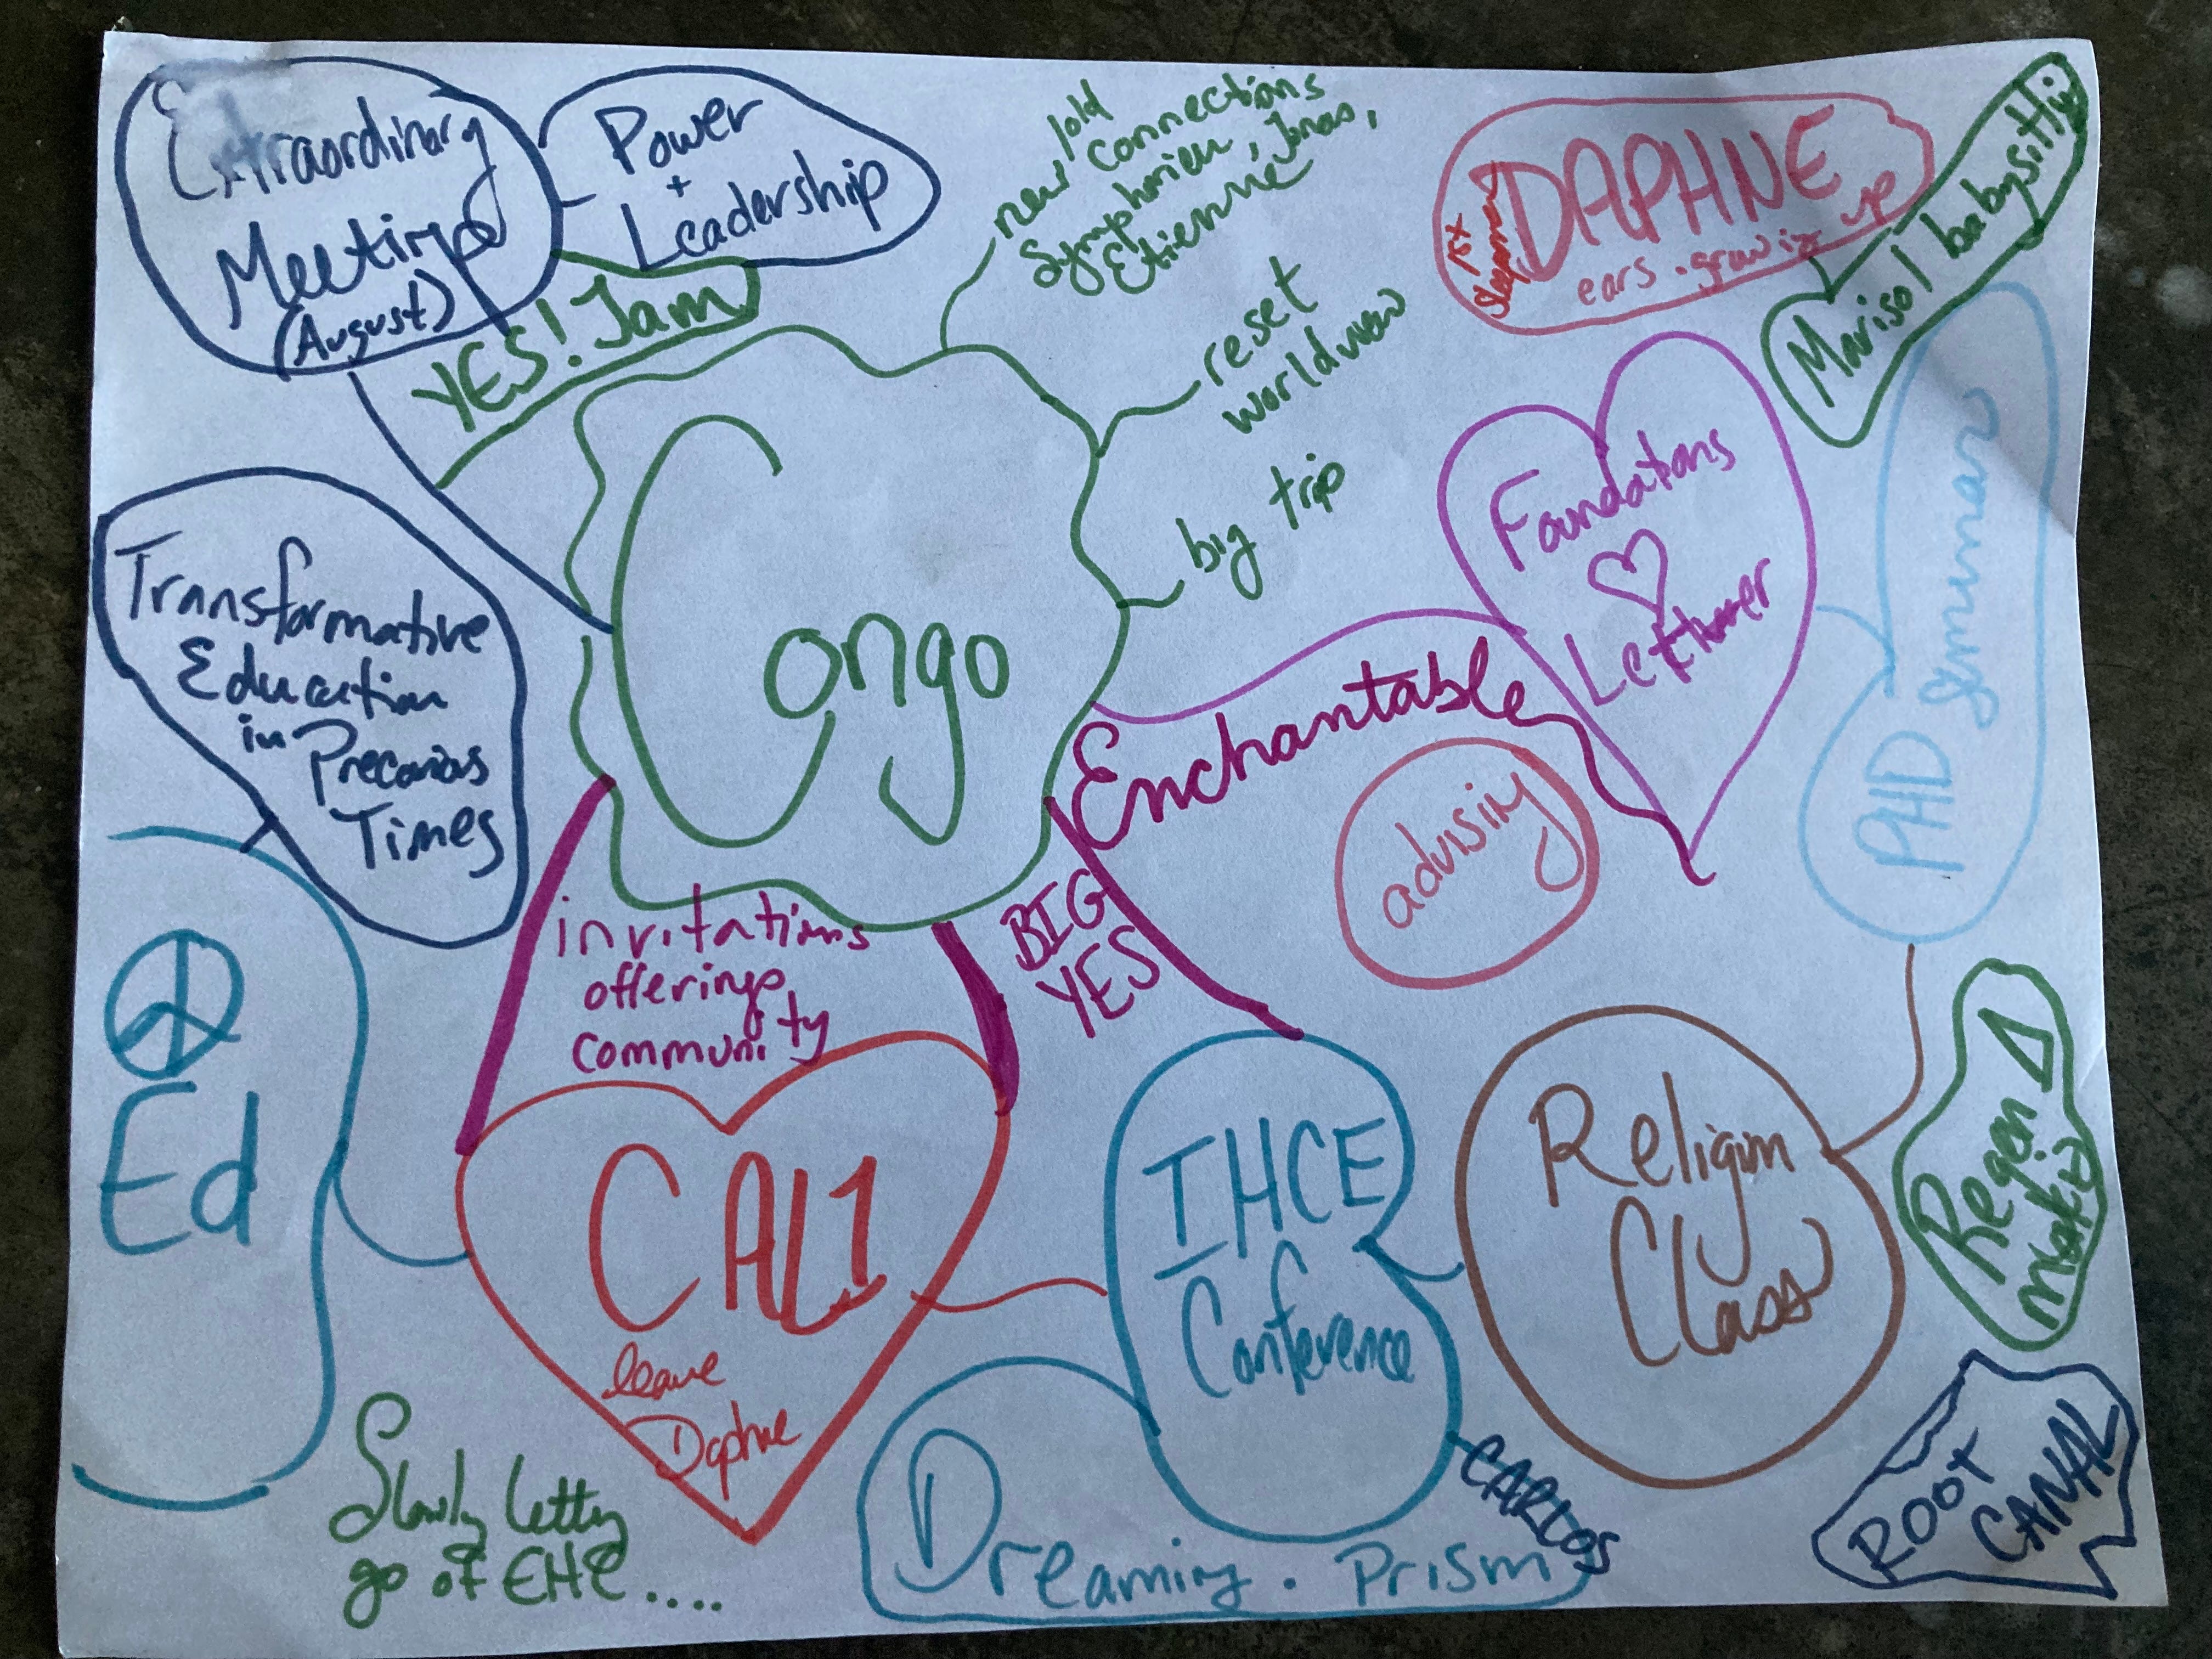 Extraordinary
Meeting
(August)
Power
+
Leadership
YES! Jam
new/old
connections
Symphorien, Jonas,
Etienne
reset
worldview
big trip
DAPHNE
ears. growing up
Marisol babysitting
Congo
Transformative
Education
in Precarious
Times
Foundations
PHD Seminar
Enchantable
advising
BIG
YES
invitations
offerings
community
Ed
CALI
leave
Daphne
IHCE
Conference
Religion
Class
Regen
ROOT
CANAL
CARLOS
Dreaming. Prism
Slowly letting
go of EHE....